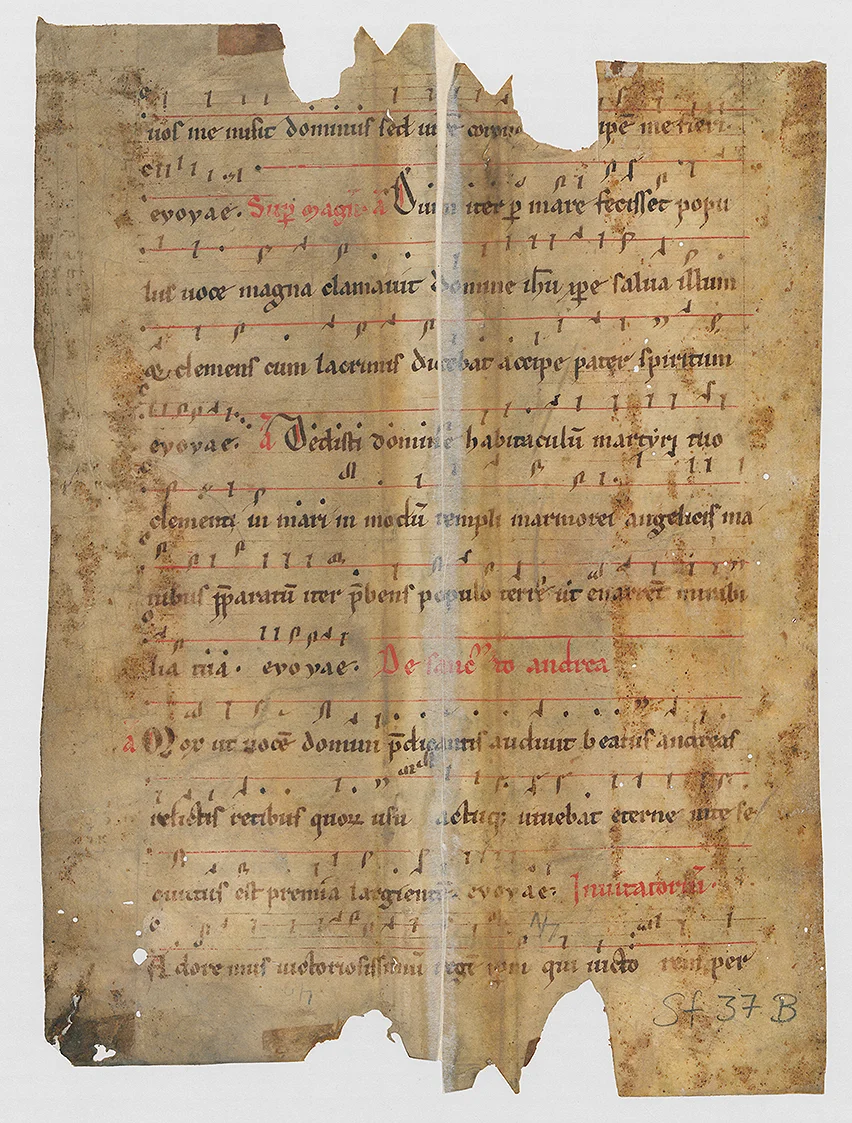 uos me misit dominus sed ur̄e coron ip̄e me fieri.
evovae. Sup̄ magn̄ ā Cum iter p̄ mare fecisset popu
lus uoce magna clamauit domine ih̄u xp̄e salua illum
clemens cum lacrimis dicebat accipe pater spiritum
evovae. ā Dedisti domine habitaculū martyri tuo
clementi in mari in modū templi marmorei angelicis ma
nibus p̄paratū iter p̄bens populo terre ut enarret mirabi
lia tua. evovae. De sancto andrea
ā Mox ut uocē domini p̄dicantis audiuit beatus andreas
relictis retibus quoꝝ usu actuqꝫ uiuebat eterne uite se
cutus est premia largientis evovae. Inuitatoriū.
Adoremus uictoriosissimū regi xpm qui uicto rem per
N 7
Sf 37 B